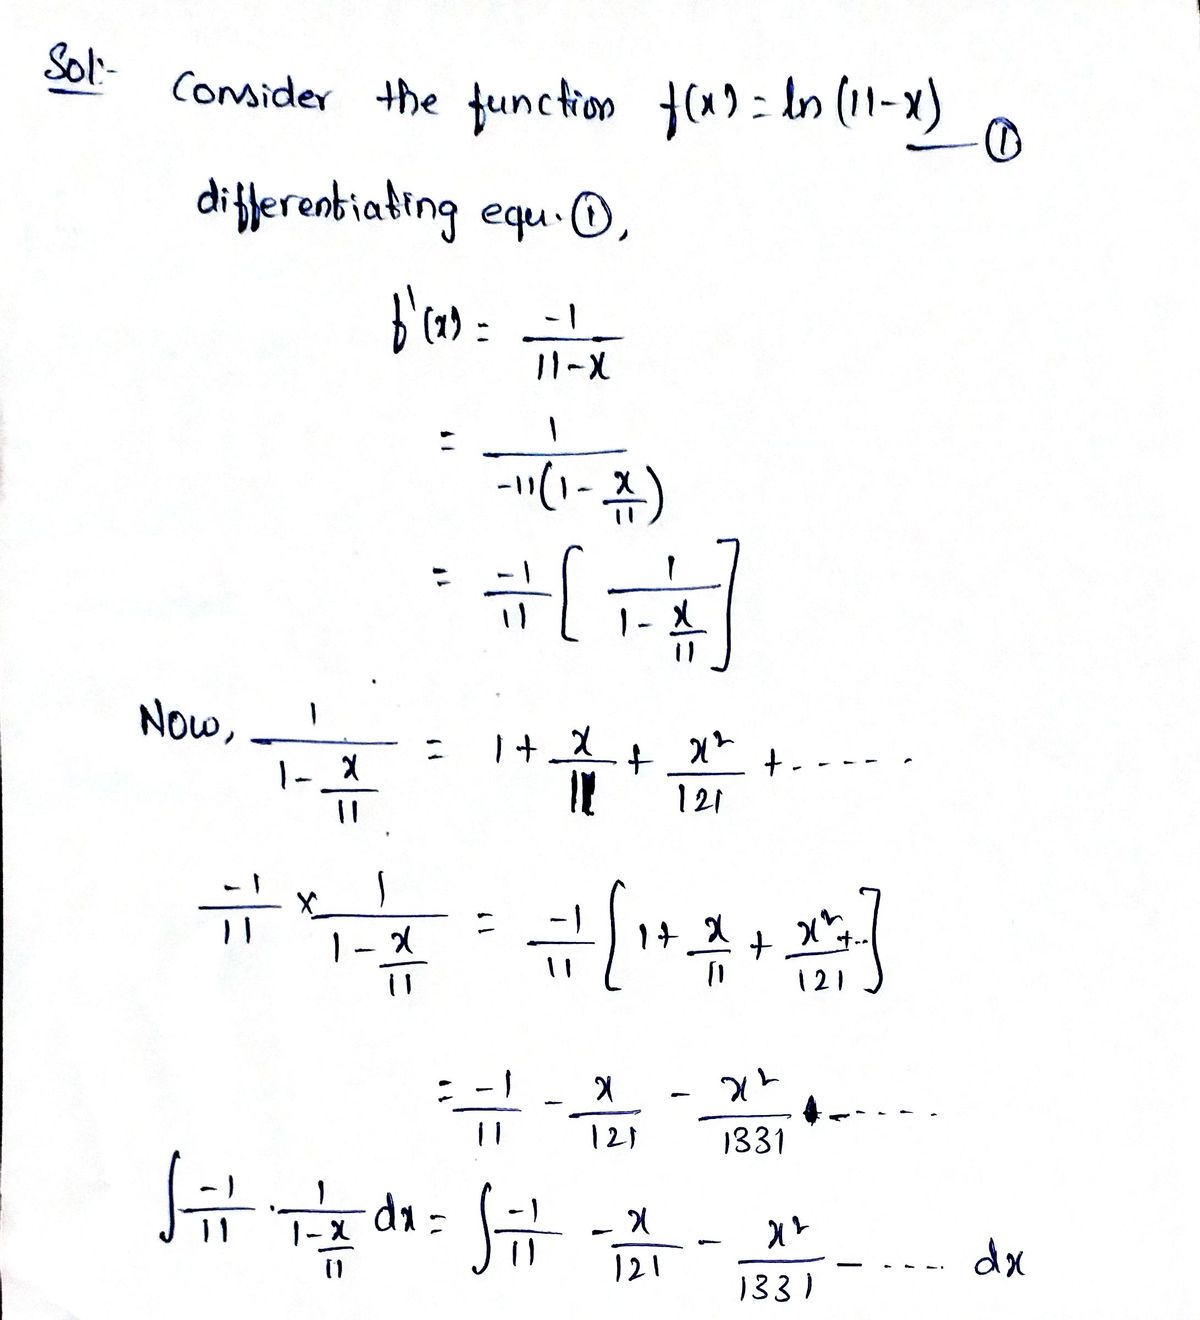 Sol:- Consider the function f(x) = ln (11-x) — ①
differentiating equ. ①,
f'(x) = -1/(11-x)
= 1/(-11(1 - x/11))
= -1/11 [ 1/(1 - x/11) ]
Now, 1/(1 - x/11) = 1 + x/11 + x²/121 + - - - - - .
-1/11 × 1/(1 - x/11) = -1/11 [ 1 + x/11 + x²/121 + .. ]
= -1/11 - x/121 - x²/1331 - - - - - .
∫ -1/11 · 1/(1 - x/11) dx = ∫ -1/11 - x/121 - x²/1331 - - - - - dx